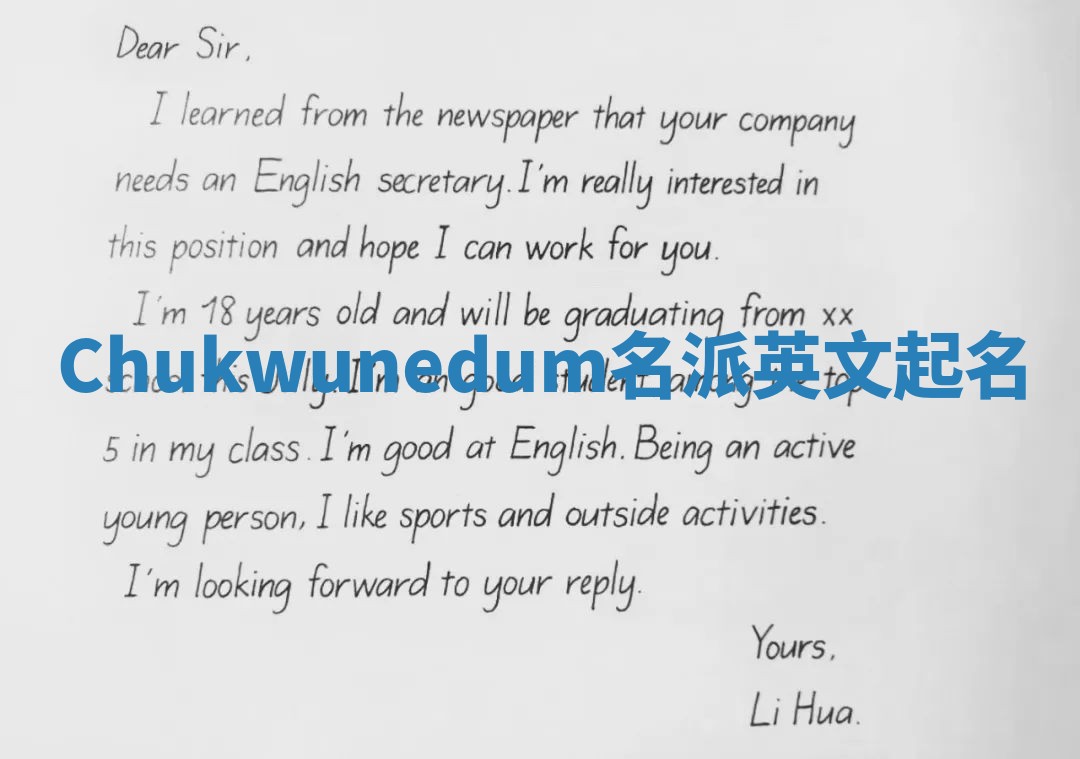 Dear Sir,
I learned from the newspaper that your company
needs an English secretary. I'm really interested in
this position and hope I can work for you.
I'm 18 years old and will be graduating from xx
Chukwunedum名派英文起名
school this July. I'm an good student among the top
5 in my class. I'm good at English. Being an active
young person, I like sports and outside activities.
I'm looking forward to your reply.
Yours,
Li Hua.